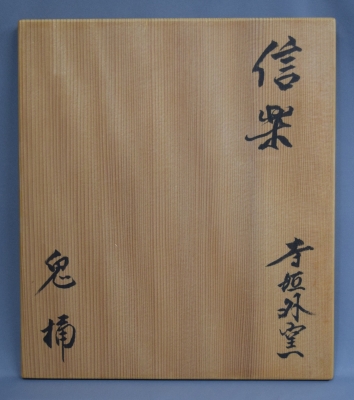 信楽
寺垣外窯
鬼桶